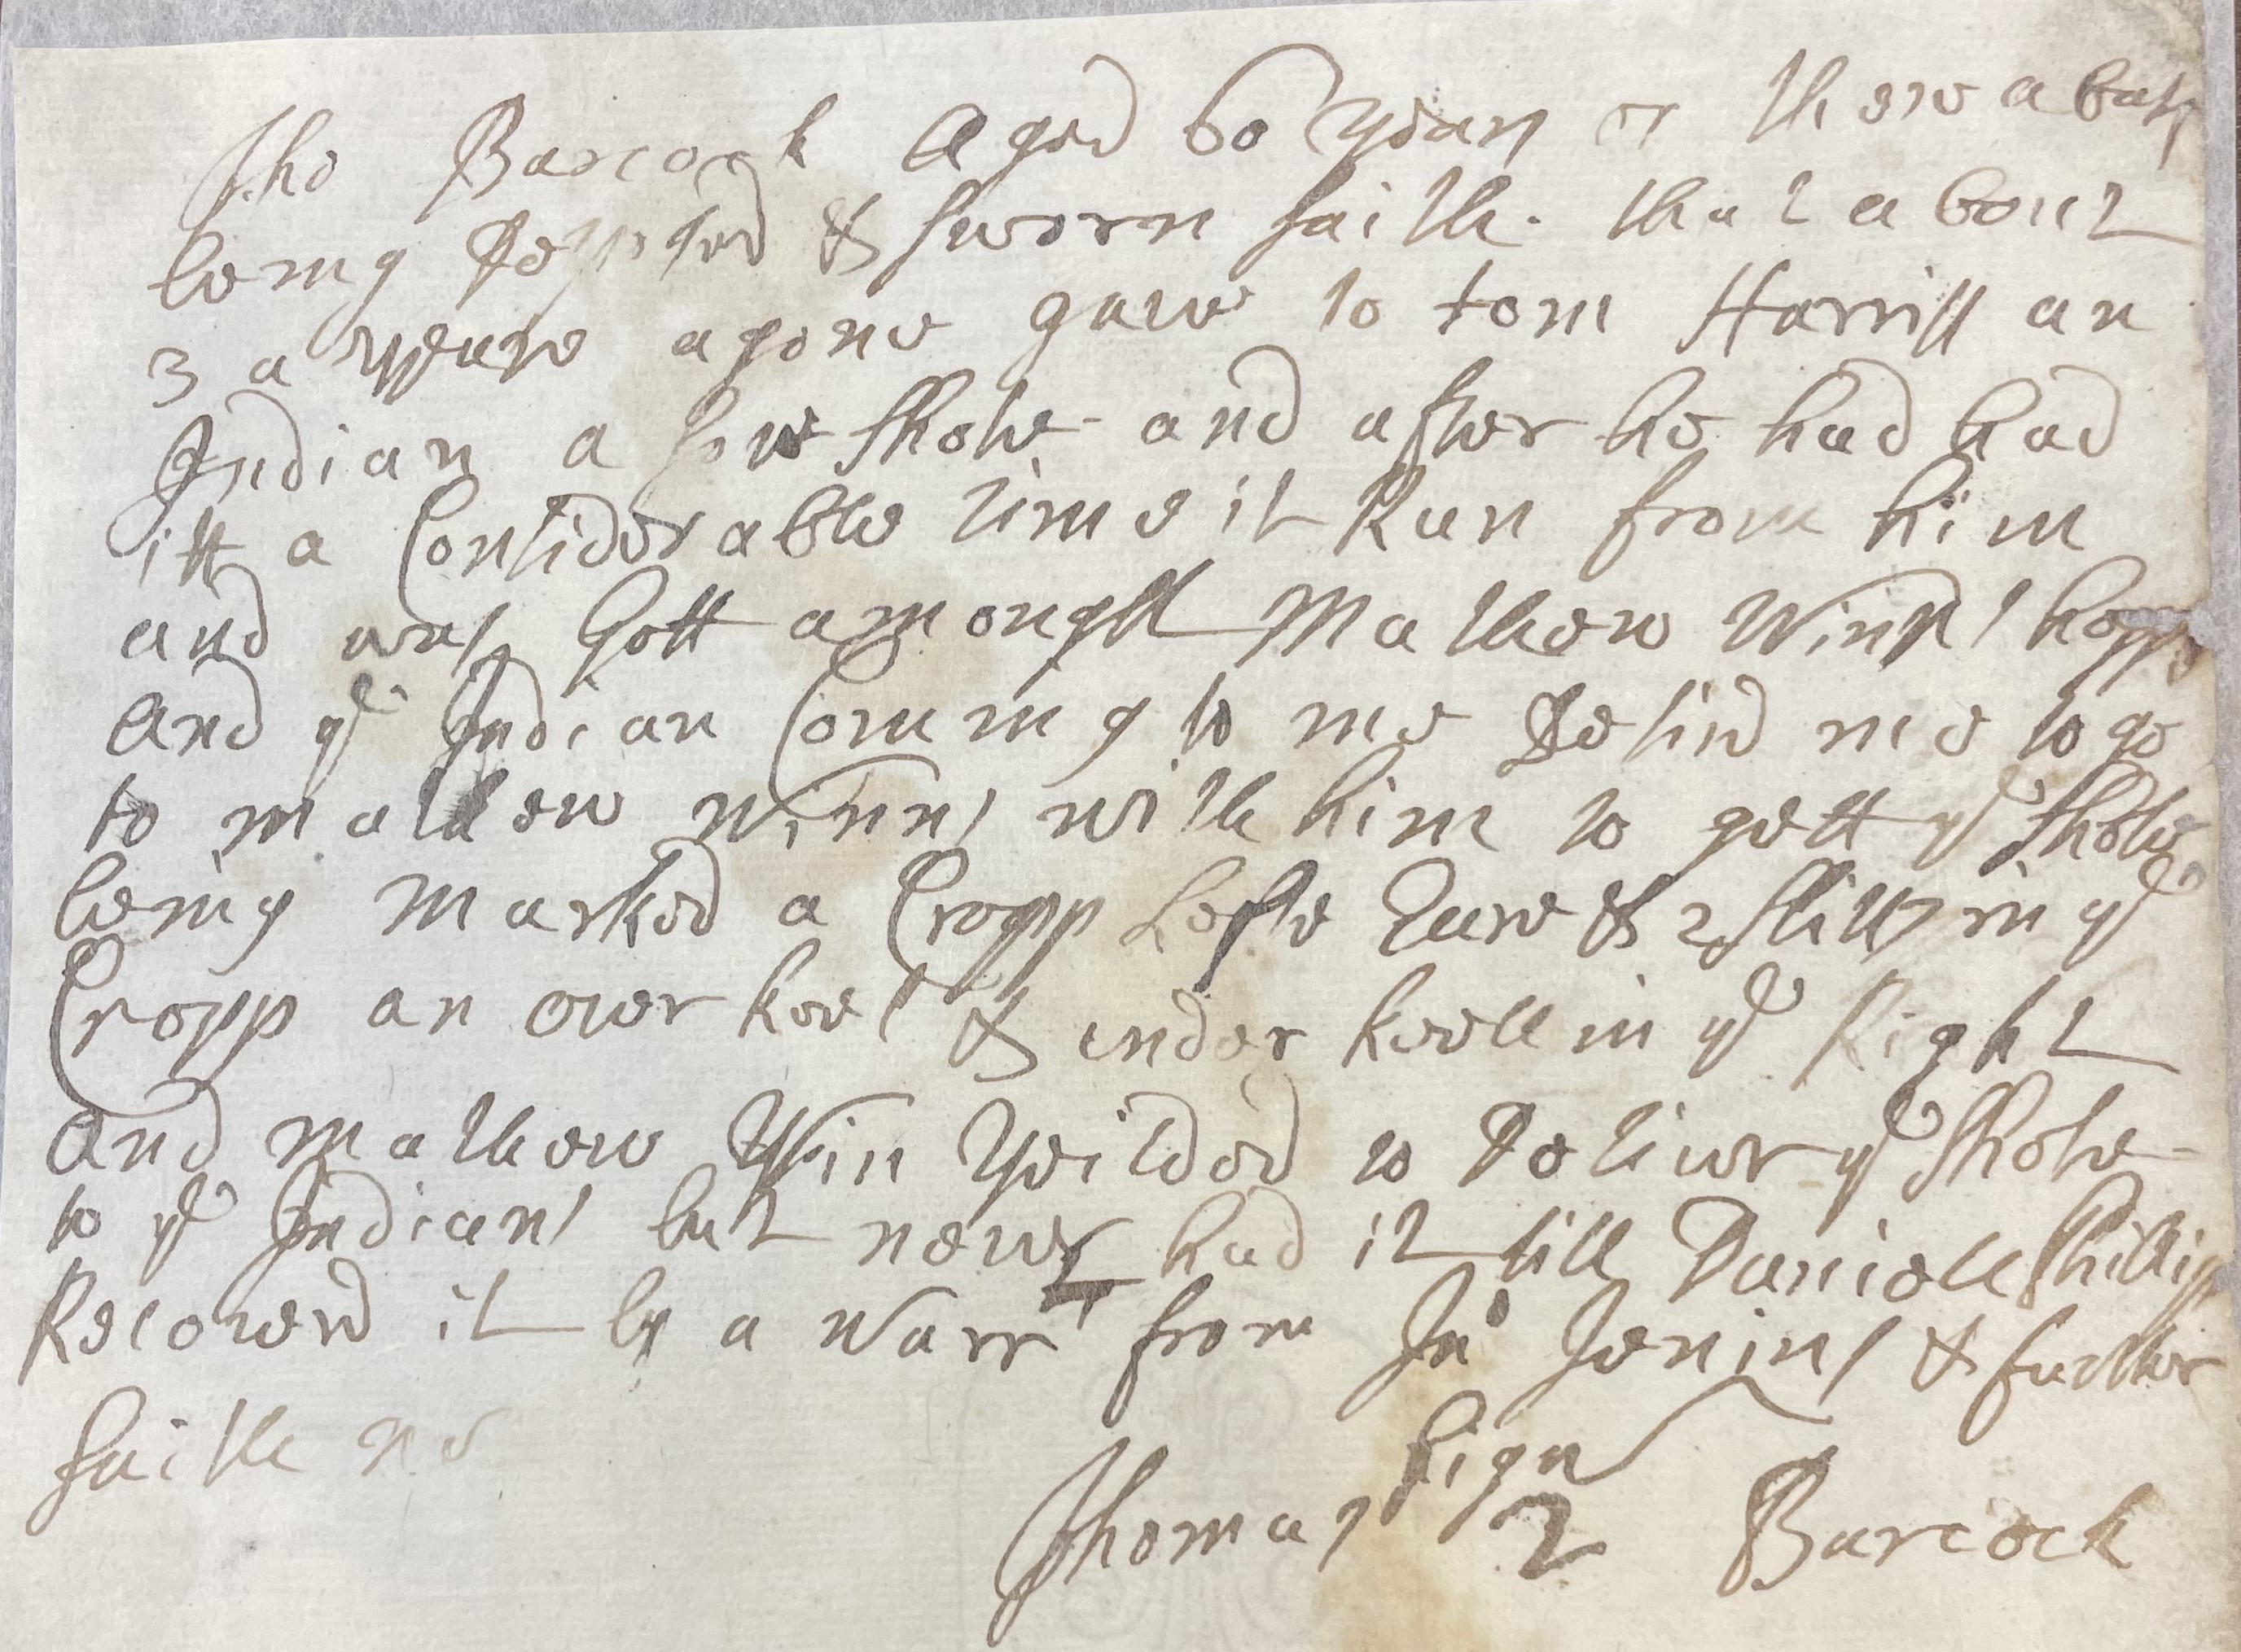 Tho Barcock Aged 60 Years or thereabats
being Deposed & sworn saith that about
3 a yeare agone gave to tom Harriss an
Indian a sow Shote and after he had had
itt a Considerable time it Run from him
and was Gott amongst Mathew Winns hoggs
And ye Indian Coming to me Desired me to go
to mathew winns with him to gett ye Shote
being Marked a Cropp Lefte Eare & 2 slitts in ye
Cropp an over keel & under keell in ye Right
And mathew Win Yeilded to Deliver ye Shote
to ye Indians but never had it till Daniell Phillips
Recovered it by a Warrt from Jno Jenins & further
saith no
sign
Thomas 2 Barcock